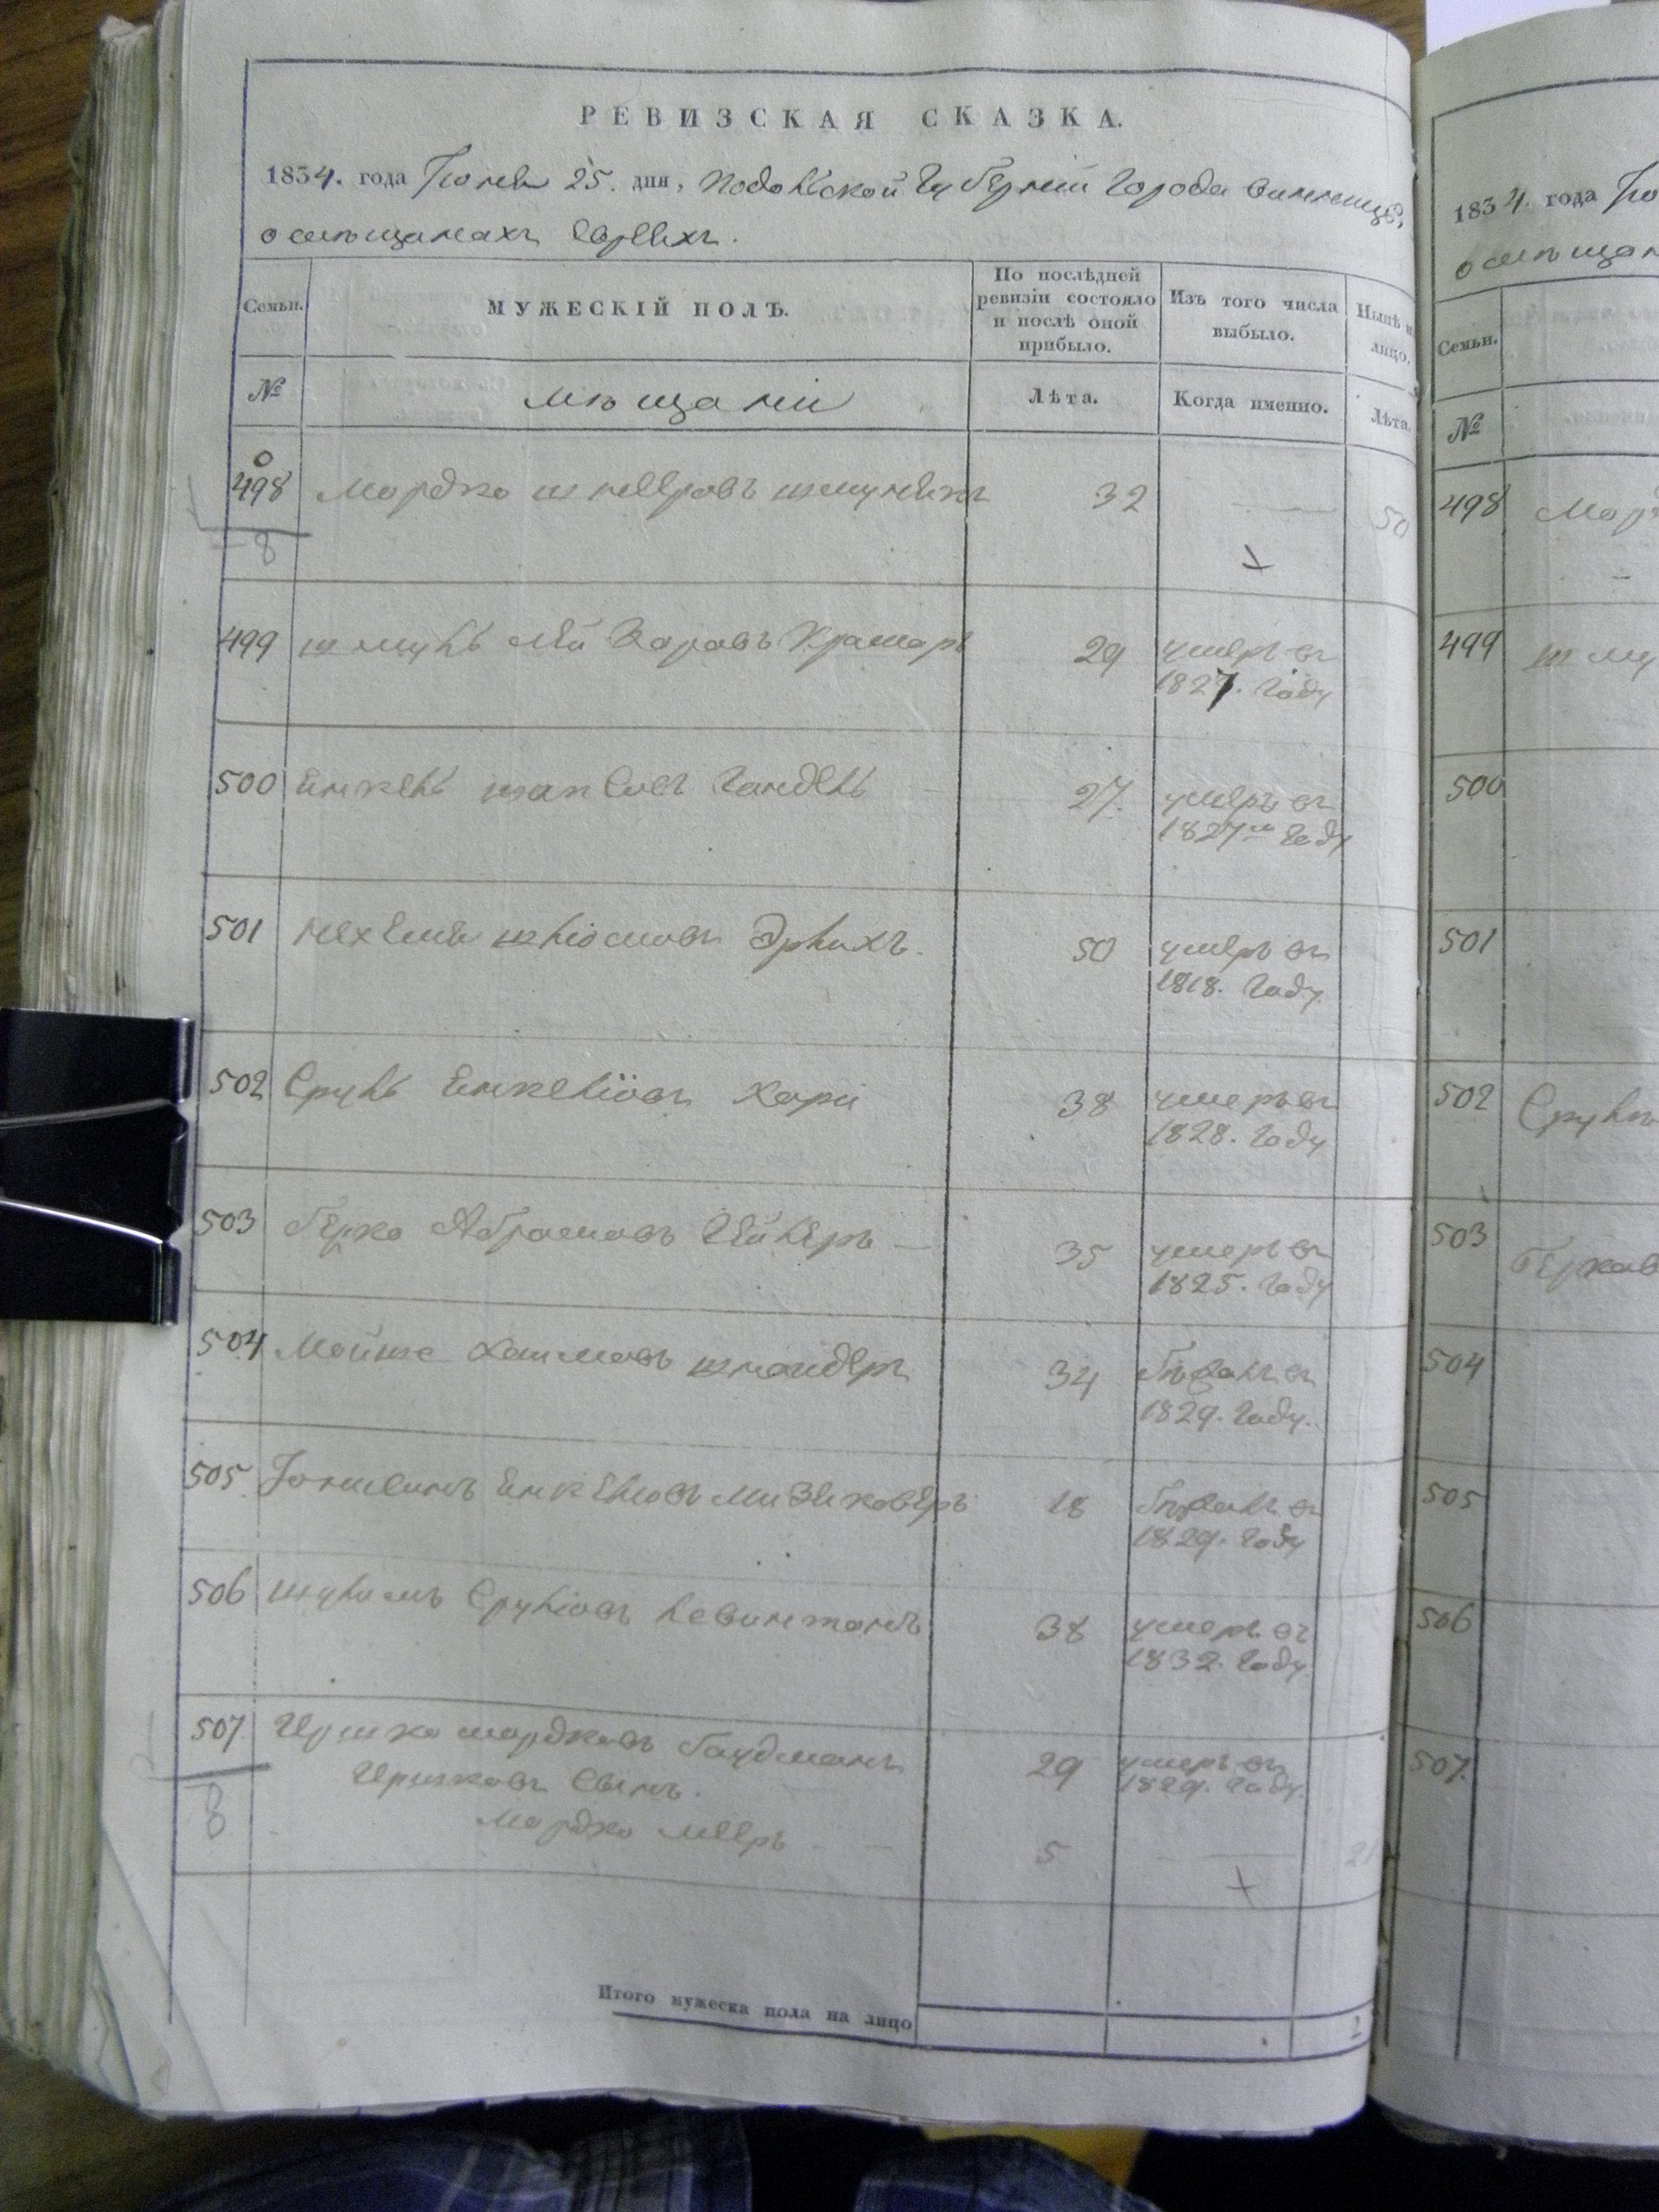 РЕВИЗСКАЯ СКАЗКА.
1834. года Іюня 25. дня, Подольской Губерніи Города Винницы,
о мѣщанахъ Евреяхъ.
Семьи. МУЖЕСКІЙ ПОЛЪ. По послѣдней ревизіи состояло и послѣ оной прибыло. Изъ того числа выбыло. Нынѣ на лицо.
№ мѣщани Лѣта. Когда именно. Лѣта.
498 Мордко 32 50
8
499 шмуль Мейзаровъ Крамаръ 29 умеръ въ
1827. Году
500 Янкель Гандель 27. умеръ въ
1827го Году
501 Нехемія шліомовъ Эрлихъ. 50 умеръ въ
1818. Году
502 Сруль Янкеліовъ Хари 38 умеръ въ
1828. Году
503 Берко Абрамовъ 35 умеръ въ
1825. Году
504 Мойше Хаимовъ шнайдеръ 34 бѣжалъ въ
1829. Году.
505 Янкеліовъ 18 бѣжалъ въ
1829. Году
506 шулимъ Сруліовъ Левинтанъ 38 умеръ въ
1832. Году
507. Иршко мордковъ Гаудманъ 29 умеръ въ
1829. Году.
Иршковъ Сынъ.
8 Мордко мееръ 5 21
Итого мужеска пола на лицо 2
1834. года Ію
о мѣщан
Семьи.
№
498 Мор
499 шму
500
501
502 Срул
503 Берков
504
505
506
507.